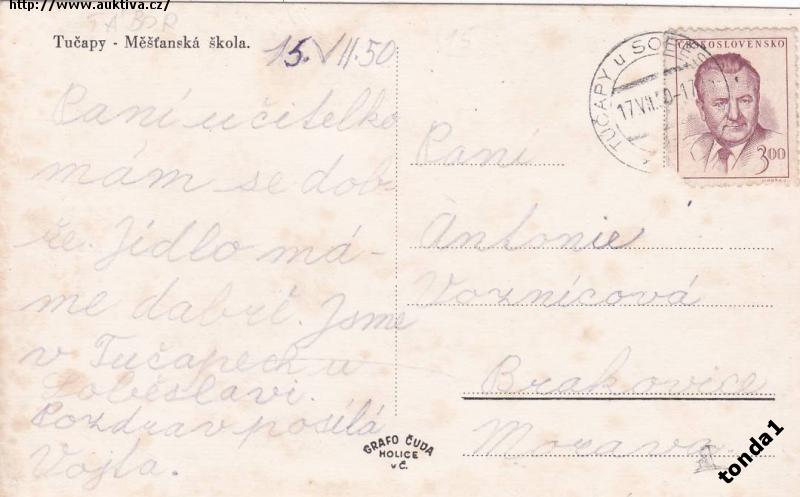 http://www.auktiva.cz/
TABOR
Tučapy - Měšťanská škola.
15. VII.50
15
TUČAPY u SOB
17.VII.50-17
ČESKOSLOVENSKO
3,00
Paní učitelko
mám se dob-
ře. Jídlo má-
me dabré. Jsme
v Tučapech u
Soběslavi.
Pozdrav posílá
Vojta.
Paní
Antonie
Voznicová
Brakovice
Morava
GRAFO ČUDA
HOLICE
v Č.
tonda1